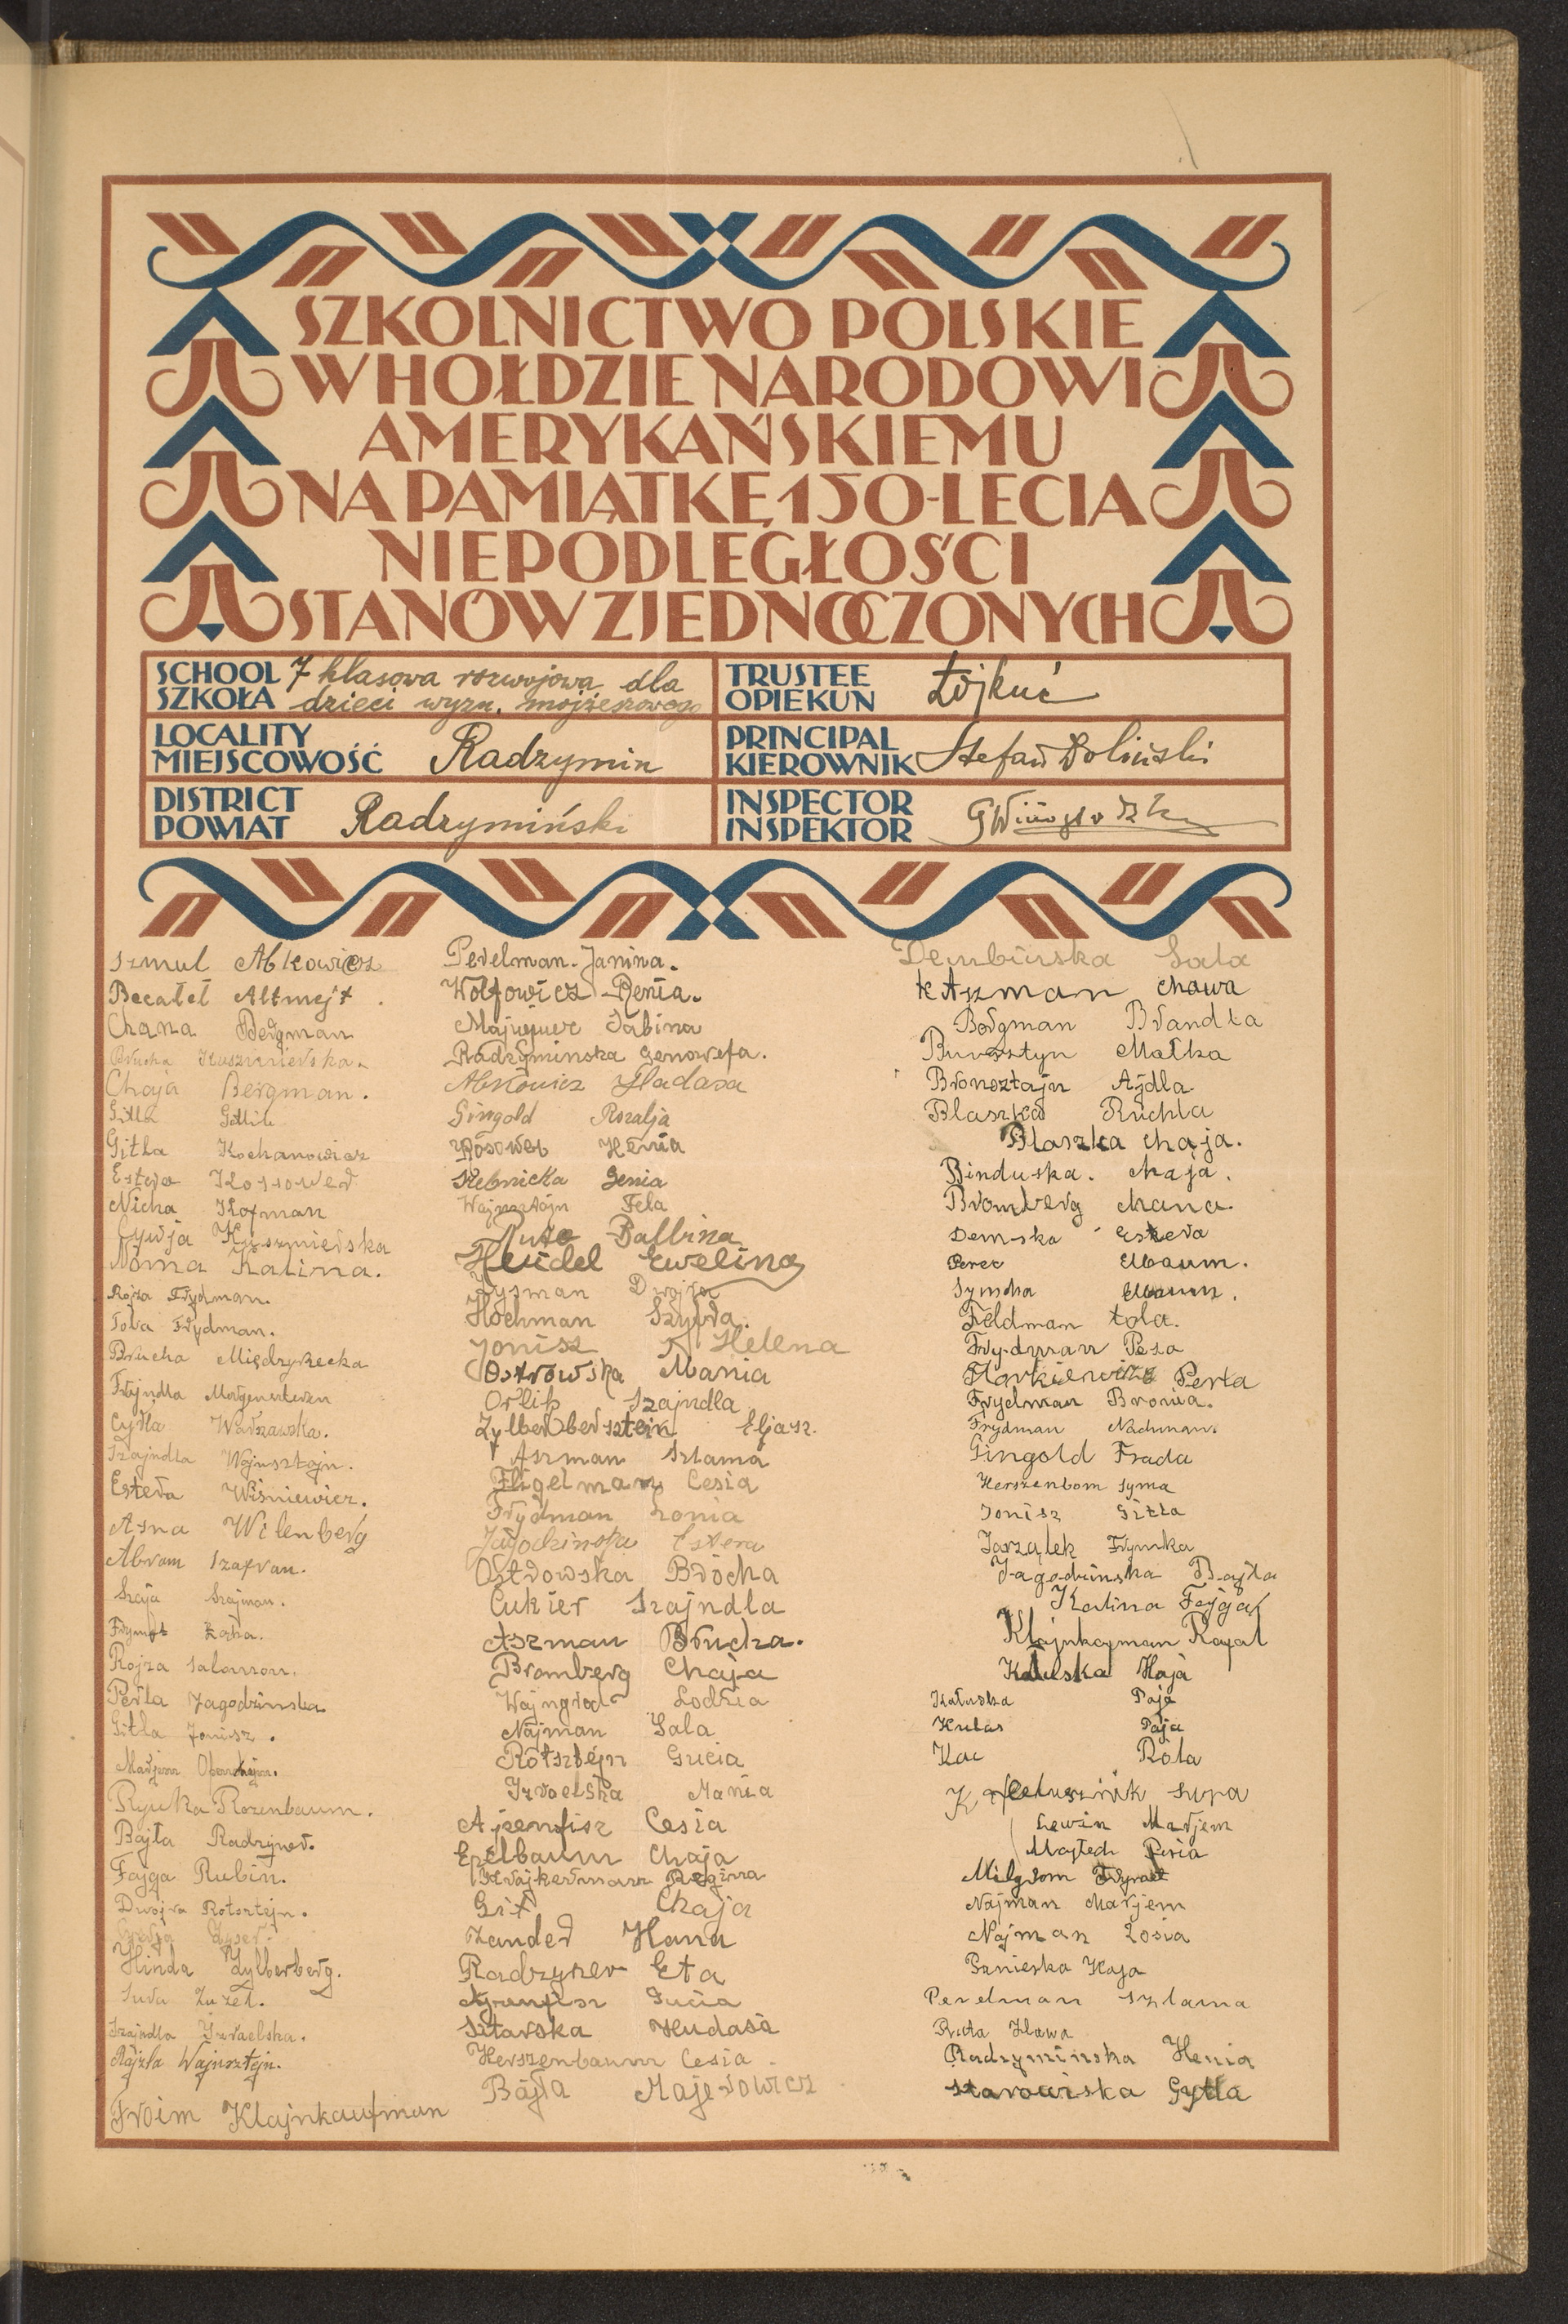 SZKOLNICTWO POLSKIE
W HOŁDZIE NARODOWI
AMERYKAŃSKIEMU
NA PAMIĄTKĘ 150-LECIA
NIEPODLEGŁOŚCI
STANÓW ZJEDNOCZONYCH
SCHOOL
SZKOŁA
7 klasowa rozwojowa dla
dzieci wyzn. mojżeszowego
TRUSTEE
OPIEKUN
Łojkuć
LOCALITY
MIEJSCOWOŚĆ
Radzymin
PRINCIPAL
KIEROWNIK
Stefan Doliński
DISTRICT
POWIAT
Radzymiński
INSPECTOR
INSPEKTOR
Szmul Abkowicz
Becalel Altmejt.
Chana Bergman
Brucha Kuszmierska.
Chaja Bergman.
Gitla Gotlib
Gitla Kochanowicz
Estera Kossower
Nicha Kofman
Cywja Kuszmierska
Noma Kalina.
Rojza Frydman.
Toba Frydman.
Brucha Międzyrzecka
Frajndla Morgensztern
Cyrla Warszawska.
Szajndla Wajnsztajn.
Estera Wiśniewicz.
Asna Wilenberg
Abram Szafran.
Szaja Szajman.
Frymet
Rojza Salamon.
Perla Jagodzinska
Gitla Jonisz.
Marjem
Rywka Rozenbaum.
Bajla Radzyner.
Fajga Rubin.
Dwojra Rotsztejn.
Hinda Zylberberg.
Sura
Szajndla Izraelska.
Rajzla Wajnsztejn.
Froim Klajnkaufman
Perelman. Janina.
Wolfowicz Renia.
Sabina
Radzyminska Genowefa.
Abkowicz Hadasa
Gingold Rozalja
Kosower Henia
Srebnicka Genia
Wajnsztajn Fela
Ruta Balbina
Heudel Ewelina
Zysman Dwojra
Hochman Szyfra.
Jonisz Helena
Ostrowska Mania
Orlik Szajndla
Zylberbersztein Eljasz.
Aszman Szlama
Figelman Cesia
Frydman Lonia
Jagodzinska Estera
Ostrowska Brocha
Cukier Szajndla
Aszman Brucha.
Bromberg Chaja
Wajngrod Lodzia
Najman Sala
Rotsztejn Gucia
Izraelska Mania
Ajzenfisz Cesia
Epelbaum Chaja
Krajkerman Regina
Git Chaja
Zander Hana
Radzyner Eta
Ajzenfisz Lucia
Sztarska Hudasa
Herszenbaum Cesia
Bajla Majerowicz
Dembinska Sala
Aszman Chawa
Borgman Brandla
Bursztyn Malka
Bronsztajn Ajdla
Blaszka Ruchla
Blaszka Chaja.
Binduska. Chaja.
Bromberg Chana.
Demska Estera
Perec Elbaum.
Symcha Elbaum.
Feldman Lola.
Frydman Pesa
Perla
Frydman Bronia.
Frydman Nachman.
Gingold Frada
Herszenbom Syma
Jonisz Gitla
Jarząlek Frymka
Jagodzinska Bajla
Kalina Fajga
Klajnkajman Rajzal
Kaluska Haja
Kaluska Paja
Kulas Paja
Kac Rola
Sura
Lewin Marjem
Majtech Pesia
Milgrom Frymet
Najman Marjem
Najman Zosia
Haja
Perelman Szlama
Ruta Hawa
Radzyminska Henia
Starowiska Gytla